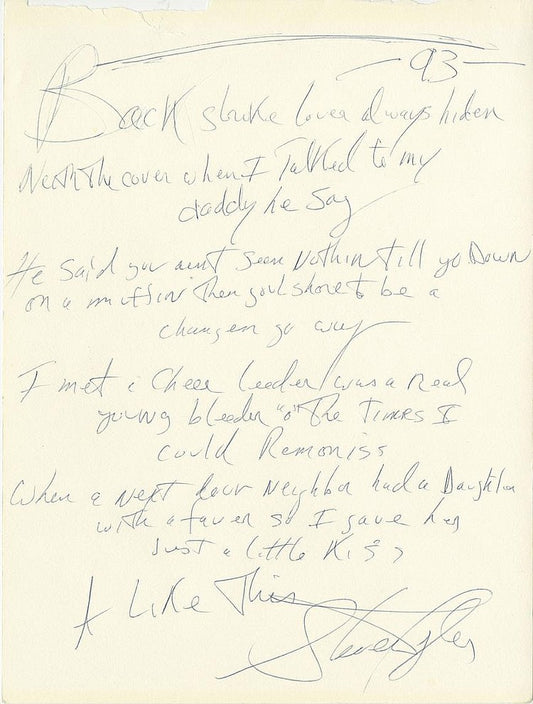 -93-
Back stroke lover always hiden
Neath the cover when I Talked to my
daddy he say
He said you aint seen Nothin till yo Down
on a muffin Then you'l shore to be a
changen yo way
I met a Cheer leeder was a real
young bleeder "o" The Times I
could Remoniss
When a Next door Neighbor had a Daughter
with a faver so I gave her
Just a little Kiss
A Like This
Steven Tyler